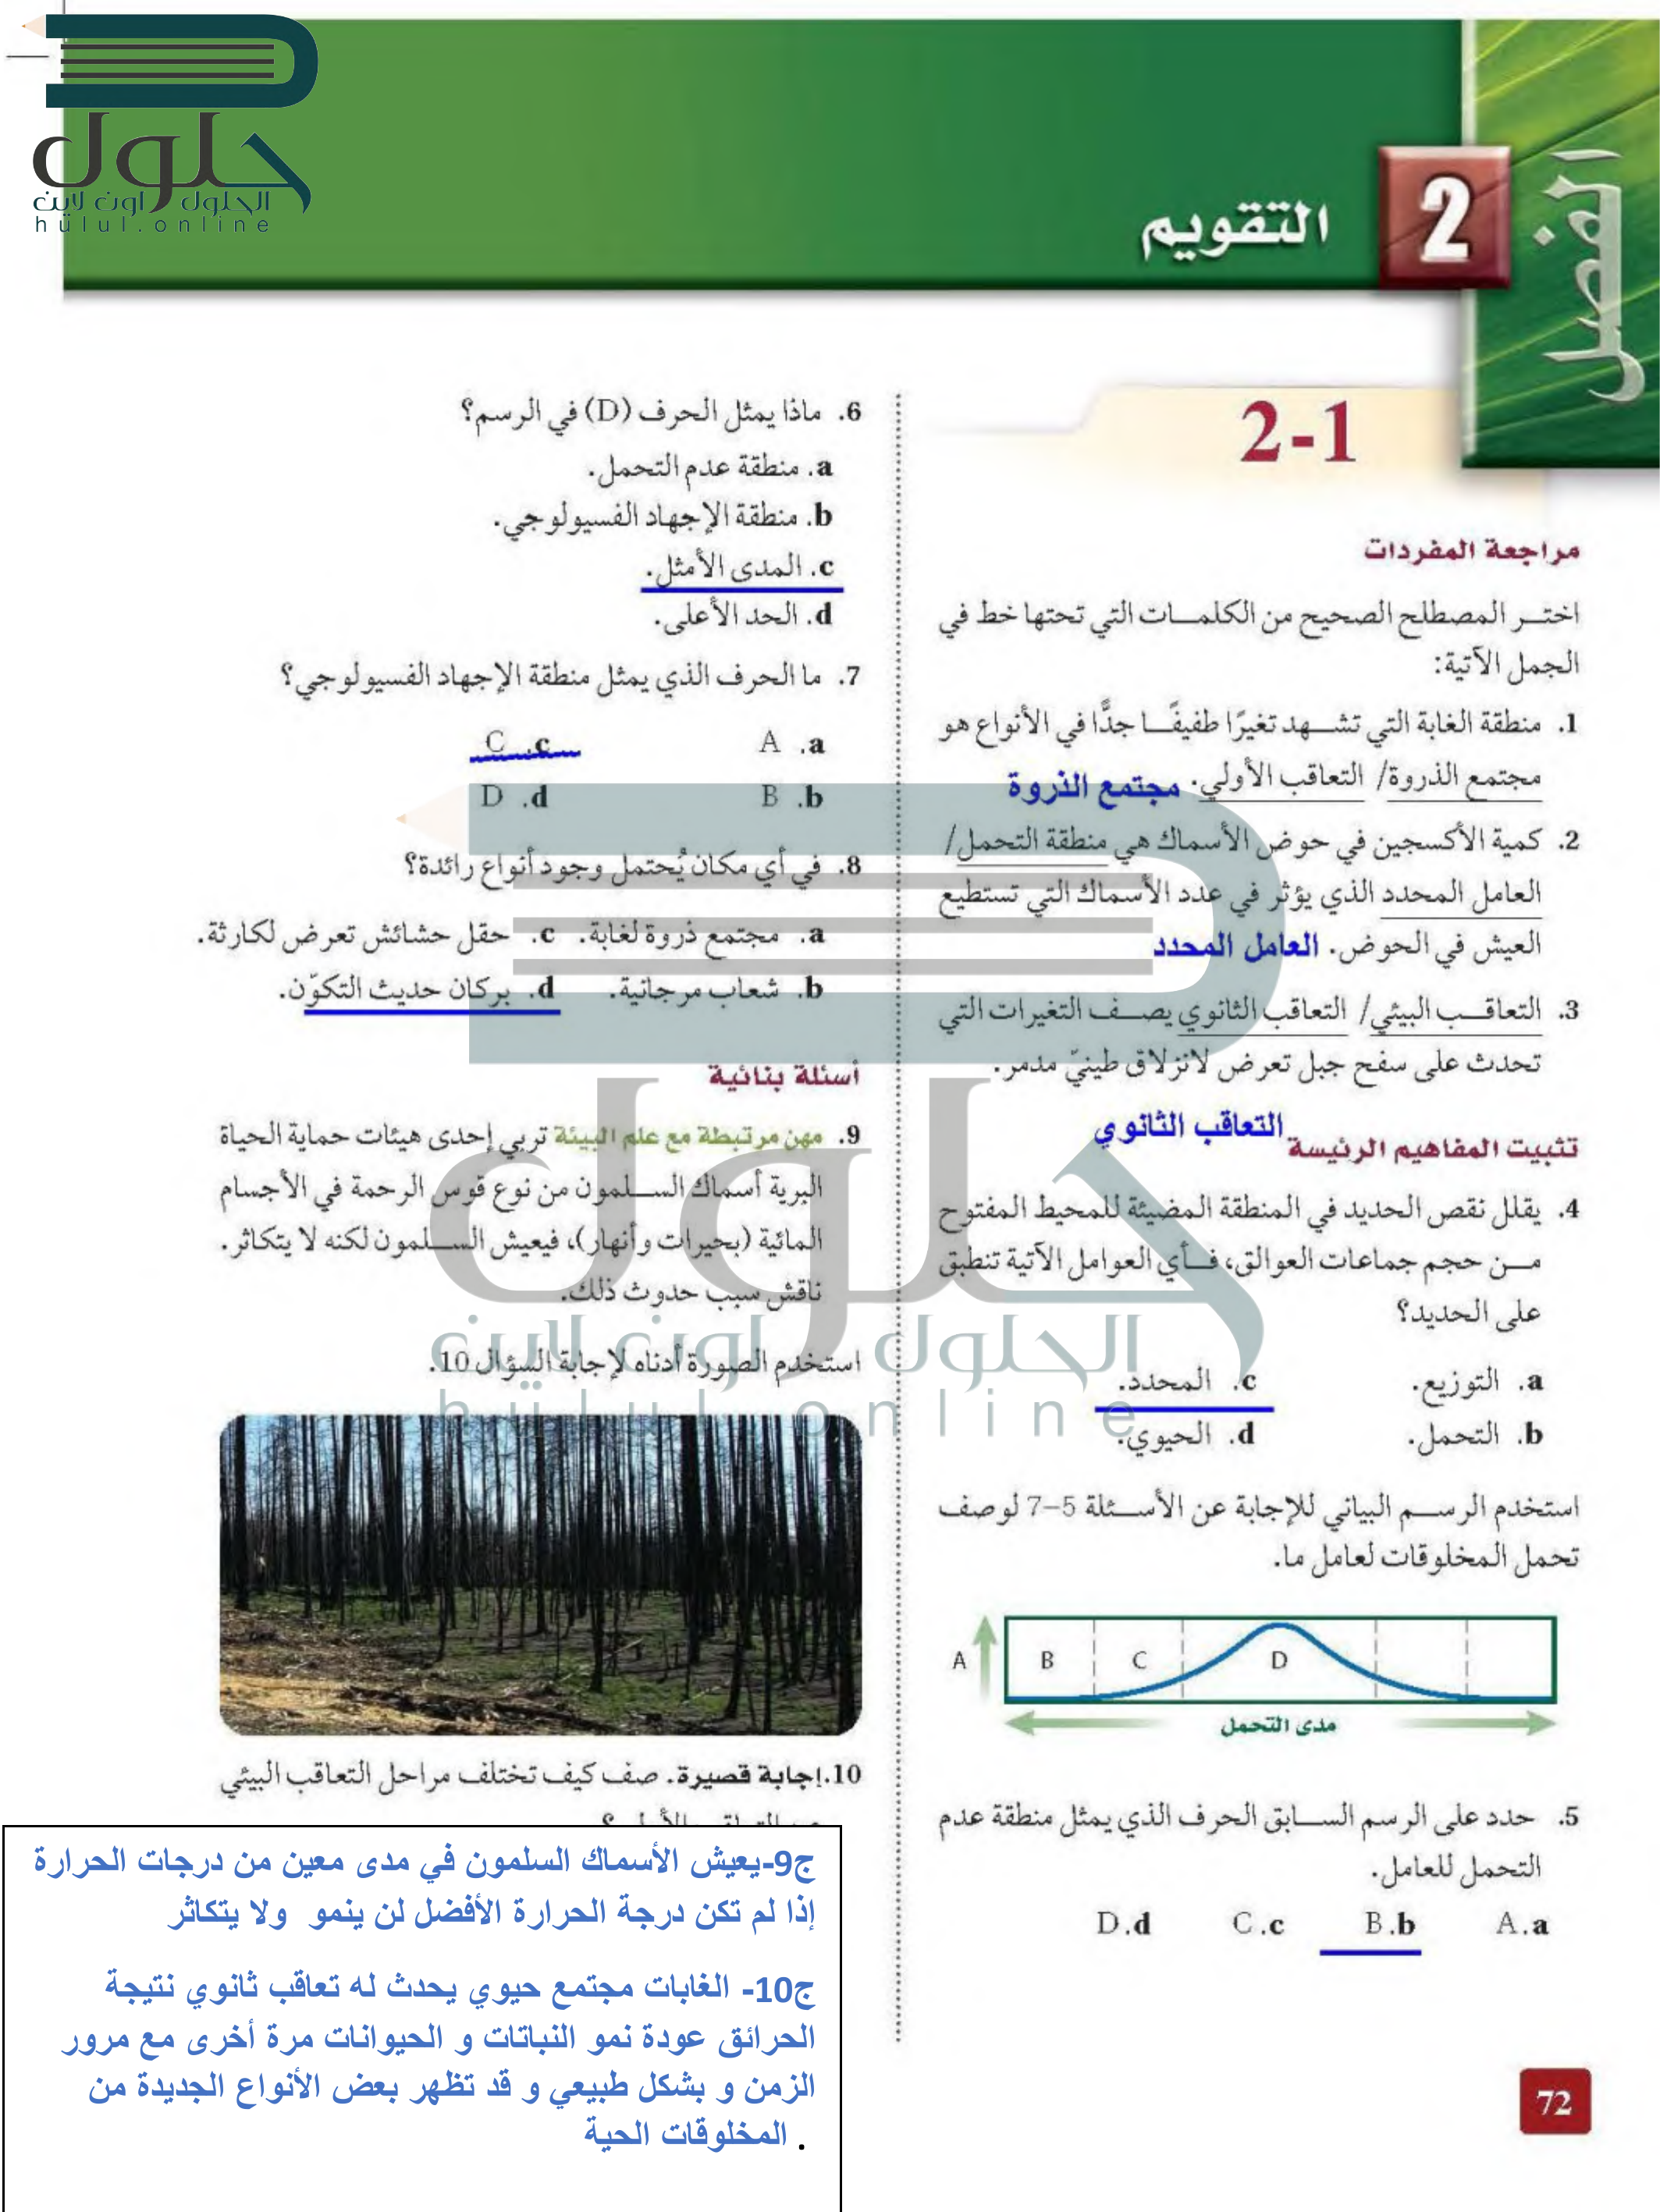 حلول
الحلول اون لاين
hulul.online
الفصل
2
التقويم
2-1
مراجعة المفردات
اختر المصطلح الصحيح من الكلمات التي تحتها خط في
الجمل الآتية:
1. منطقة الغابة التي تشهد تغيرًا طفيفًا جدًّا في الأنواع هو
مجتمع الذروة/ التعاقب الأولي. مجتمع الذروة
2. كمية الأكسجين في حوض الأسماك هي منطقة التحمل/
العامل المحدد الذي يؤثر في عدد الأسماك التي تستطيع
العيش في الحوض. العامل المحدد
3. التعاقب البيئي/ التعاقب الثانوي يصف التغيرات التي
تحدث على سفح جبل تعرض لانزلاق طينيّ مدمر.
التعاقب الثانوي
تثبيت المفاهيم الرئيسة
4. يقلل نقص الحديد في المنطقة المضيئة للمحيط المفتوح
من حجم جماعات العوالق، فأي العوامل الآتية تنطبق
على الحديد؟
a. التوزيع. c. المحدد.
b. التحمل. d. الحيوي.
استخدم الرسم البياني للإجابة عن الأسئلة 5–7 لوصف
تحمل المخلوقات لعامل ما.
A B C D
مدى التحمل
5. حدد على الرسم السابق الحرف الذي يمثل منطقة عدم
التحمل للعامل.
A.a B.b C.c D.d
6. ماذا يمثل الحرف (D) في الرسم؟
a. منطقة عدم التحمل.
b. منطقة الإجهاد الفسيولوجي.
c. المدى الأمثل.
d. الحد الأعلى.
7. ما الحرف الذي يمثل منطقة الإجهاد الفسيولوجي؟
A .a C .c
B .b D .d
8. في أي مكان يُحتمل وجود أنواع رائدة؟
a. مجتمع ذروة لغابة. c. حقل حشائش تعرض لكارثة.
b. شعاب مرجانية. d. بركان حديث التكوّن.
أسئلة بنائية
9. مهن مرتبطة مع علم البيئة تربي إحدى هيئات حماية الحياة
البرية أسماك السلمون من نوع قوس الرحمة في الأجسام
المائية (بحيرات وأنهار)، فيعيش السلمون لكنه لا يتكاثر.
ناقش سبب حدوث ذلك.
استخدم الصورة أدناه لإجابة السؤال 10.
10.إجابة قصيرة. صف كيف تختلف مراحل التعاقب البيئي
ج9-يعيش الأسماك السلمون في مدى معين من درجات الحرارة
إذا لم تكن درجة الحرارة الأفضل لن ينمو ولا يتكاثر
ج10- الغابات مجتمع حيوي يحدث له تعاقب ثانوي نتيجة
الحرائق عودة نمو النباتات و الحيوانات مرة أخرى مع مرور
الزمن و بشكل طبيعي و قد تظهر بعض الأنواع الجديدة من
المخلوقات الحية .
72
حلول
الحلول اون لاين
hulul online